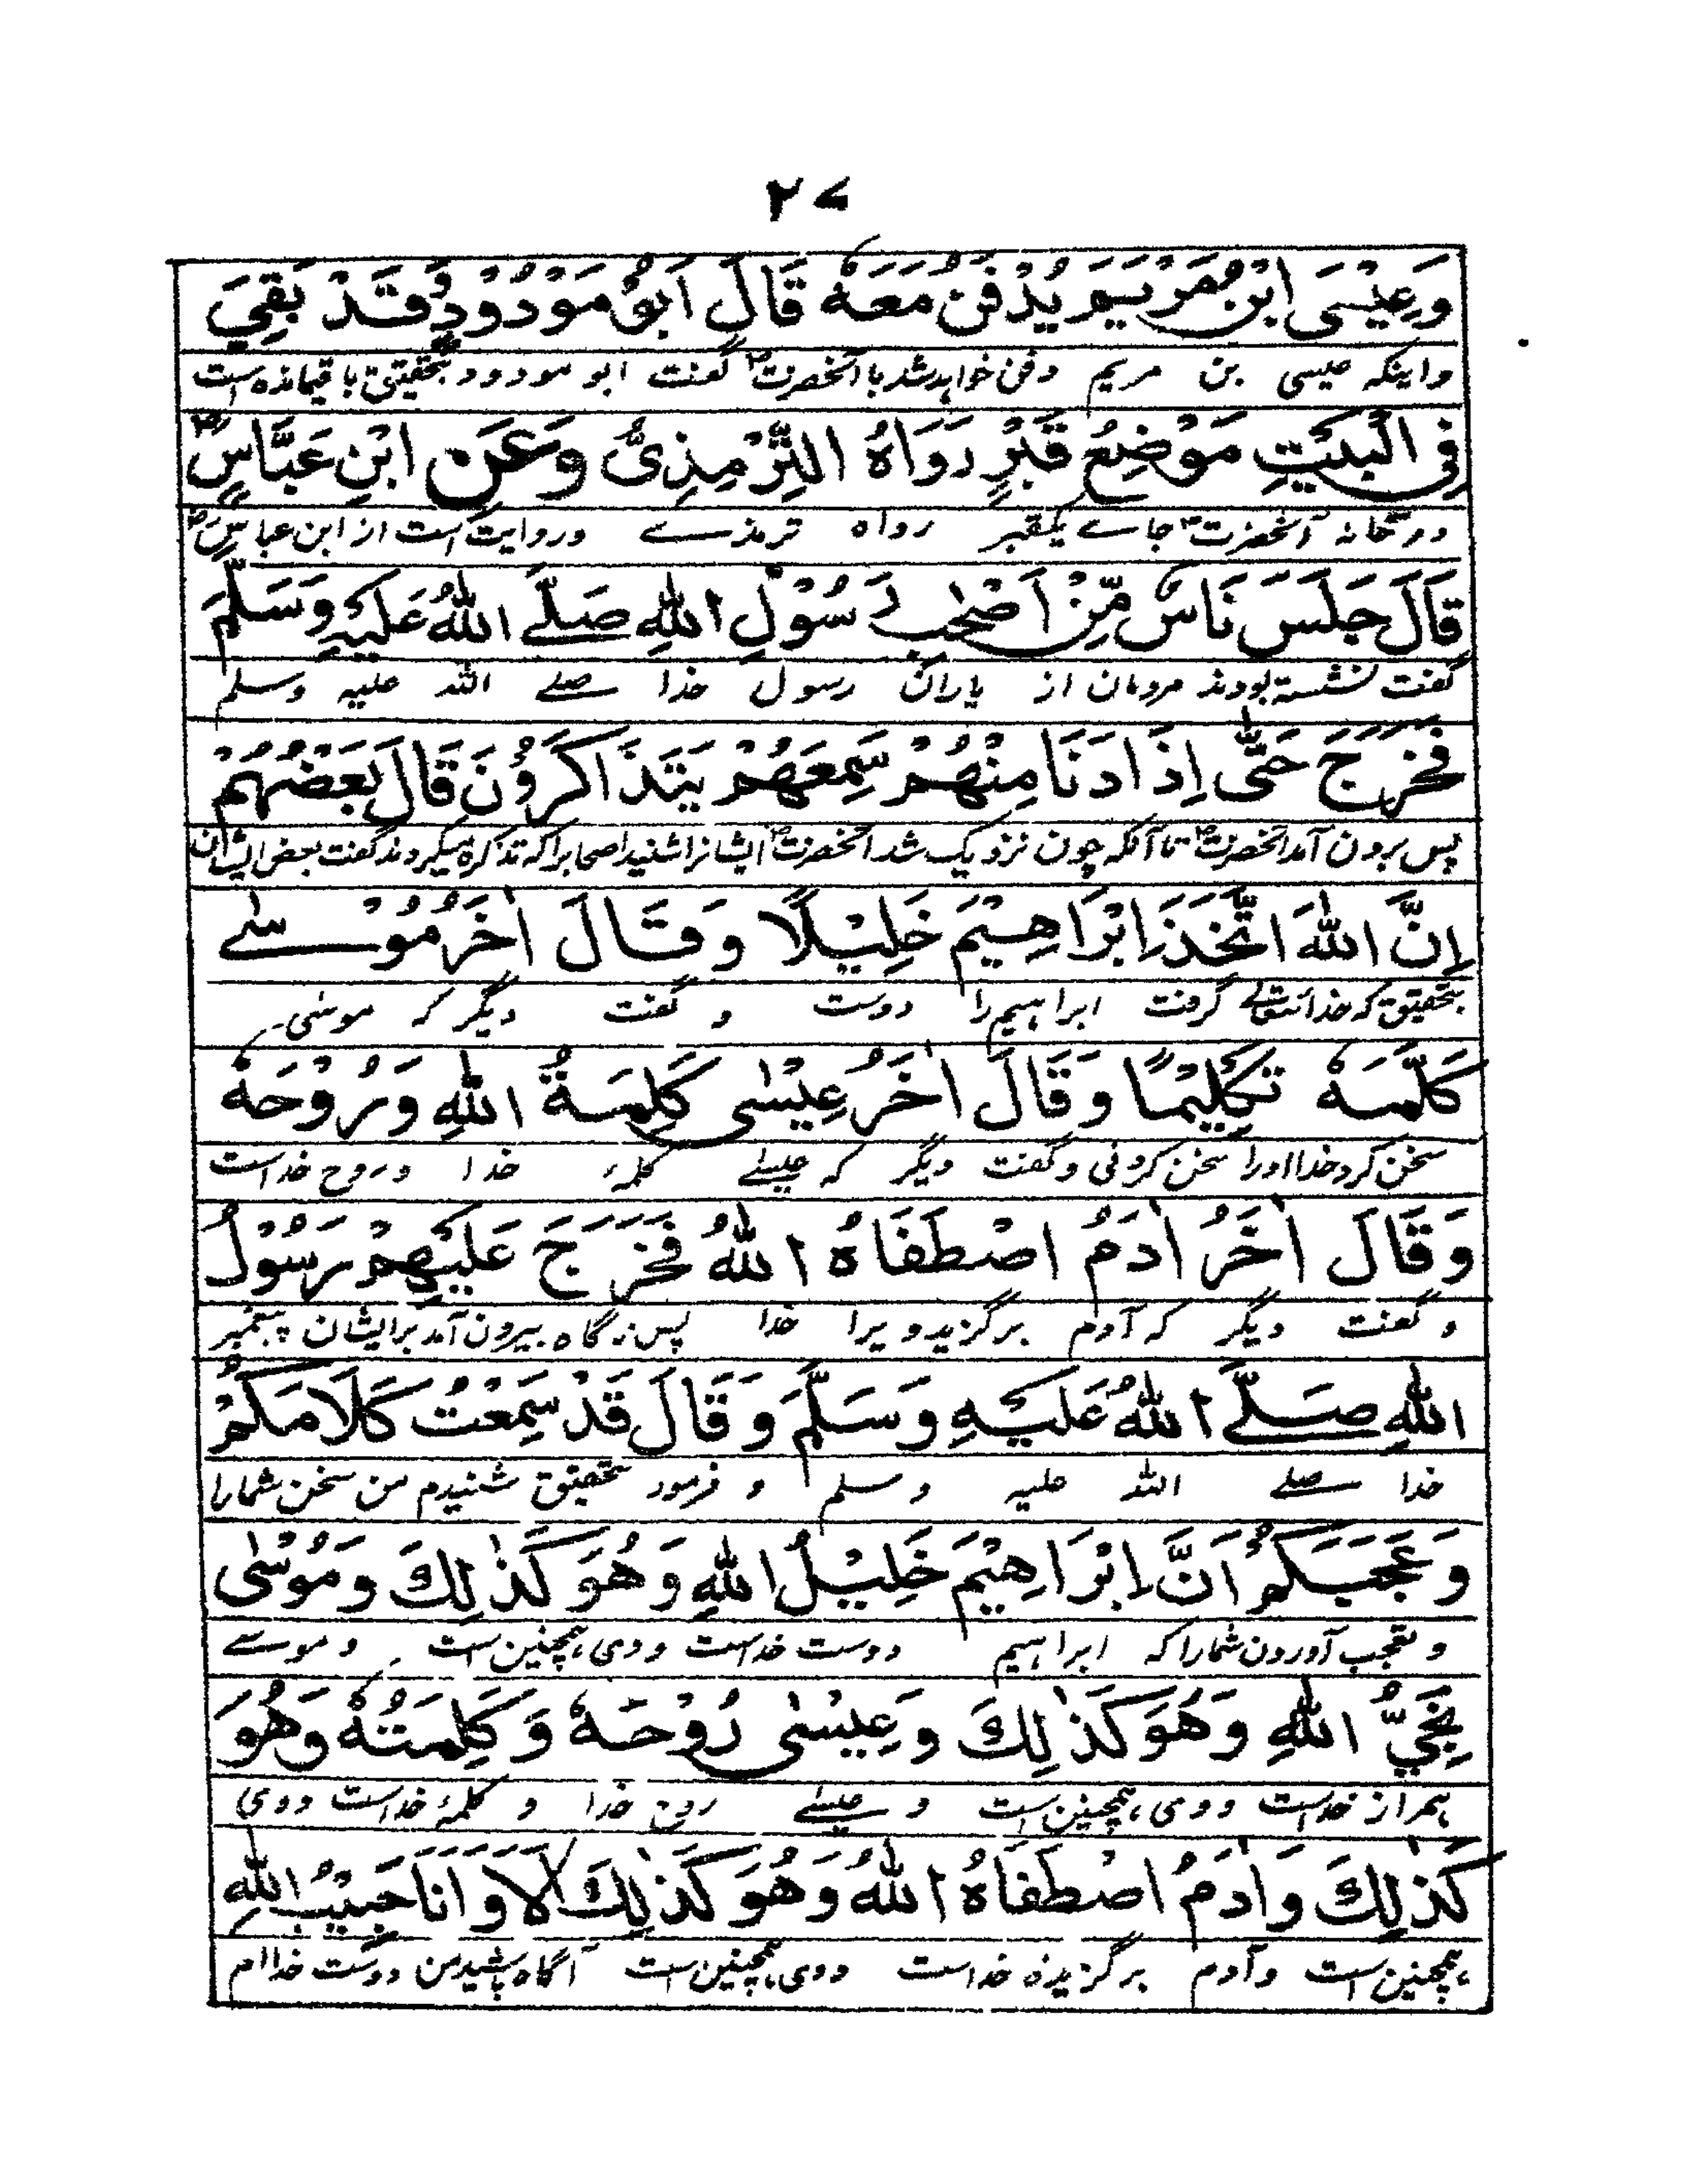 ۲۷
وَعِيْسَى ابْنُ مَرْيَمَ يُدْفَنُ مَعَهٗ قَالَ اَبُوْ مَوْدُوْدٍ وَّقَدْ بَقِيَ
واینکه عیسی بن مریم دفن خواهد شد با آنحضرتؐ گفت ابو مودود بتحقیق باقیمانده است
فِی الْبَيْتِ مَوْضِعُ قَبْرٍ رَوَاهُ التِّرْمِذِىُّ وَعَنِ ابْنِ عَبَّاسٍ رض
در خانه آنحضرتؐ جاے یکقبر رواه ترمذے و روایت است از ابن عباس رض
قَالَ جَلَسَ نَاسٌ مِّنْ اَصْحٰبِ رَسُوْلِ اللهِ صَلَّے اللهُ عَلَيْهِ وَسَلَّمَ
گفت نشسته بودند مردمان از یاران رسول خدا صلے الله علیه وسلم
فَخَرَجَ حَتّٰى اِذَا دَنَا مِنْهُمْ سَمِعَهُمْ يَتَذَاكَرُوْنَ قَالَ بَعْضُهُمْ
پس برون آمد آنحضرتؐ تا آنکه چون نزدیک شد آنحضرتؐ ایشانرا شنید اصحابرا که تذکره میکردند گفت بعض ایشان
اِنَّ اللهَ اتَّخَذَ اِبْرَاهِيْمَ خَلِيْلًا وَقَالَ اٰخَرُ مُوْسٰے
بتحقیق که خدا تعالے گرفت ابراهیم را دوست و گفت دیگر که موسٰی
كَلَّمَهٗ تَكْلِيْمًا وَقَالَ اٰخَرُ عِيْسٰى كَلِمَةُ اللهِ وَرُوْحُهٗ
سخن کرد خدا او را سخن کردنی و گفت دیگر که عیسٰے کلمهٔ خدا و روح خداست
وَقَالَ اٰخَرُ اٰدَمُ اصْطَفَاهُ اللهُ فَخَرَجَ عَلَيْهِمْ رَسُوْلُ
و گفت دیگر که آدم برگزید ویرا خدا پس ناگاه بیرون آمد برایشان پیغمبر
اللهِ صَلَّے اللهُ عَلَيْهِ وَسَلَّمَ وَقَالَ قَدْ سَمِعْتُ كَلَامَكُمْ
خدا صلے الله علیه وسلم و فرمود بتحقیق شنیدم من سخن شمارا
وَعَجَبَكُمْ اَنَّ اِبْرَاهِيْمَ خَلِيْلُ اللهِ وَهُوَ كَذٰلِكَ وَمُوْسٰى
و تعجب آوردن شمارا که ابراهیم دوست خداست و وی همچنین است و موسے
نَجِىُّ اللهِ وَهُوَ كَذٰلِكَ وَعِيْسٰى رُوْحُهٗ وَكَلِمَتُهٗ وَهُوَ
همراز خداست و وی همچنین است و عیسٰے روح خدا و کلمهٔ خداست و وی
كَذٰلِكَ وَاٰدَمُ اصْطَفَاهُ اللهُ وَهُوَ كَذٰلِكَ اَلَا وَاَنَا حَبِيْبُ اللهِ
همچنین است و آدم برگزیده خداست و وی همچنین است آگاه باشید من دوست خدا ام